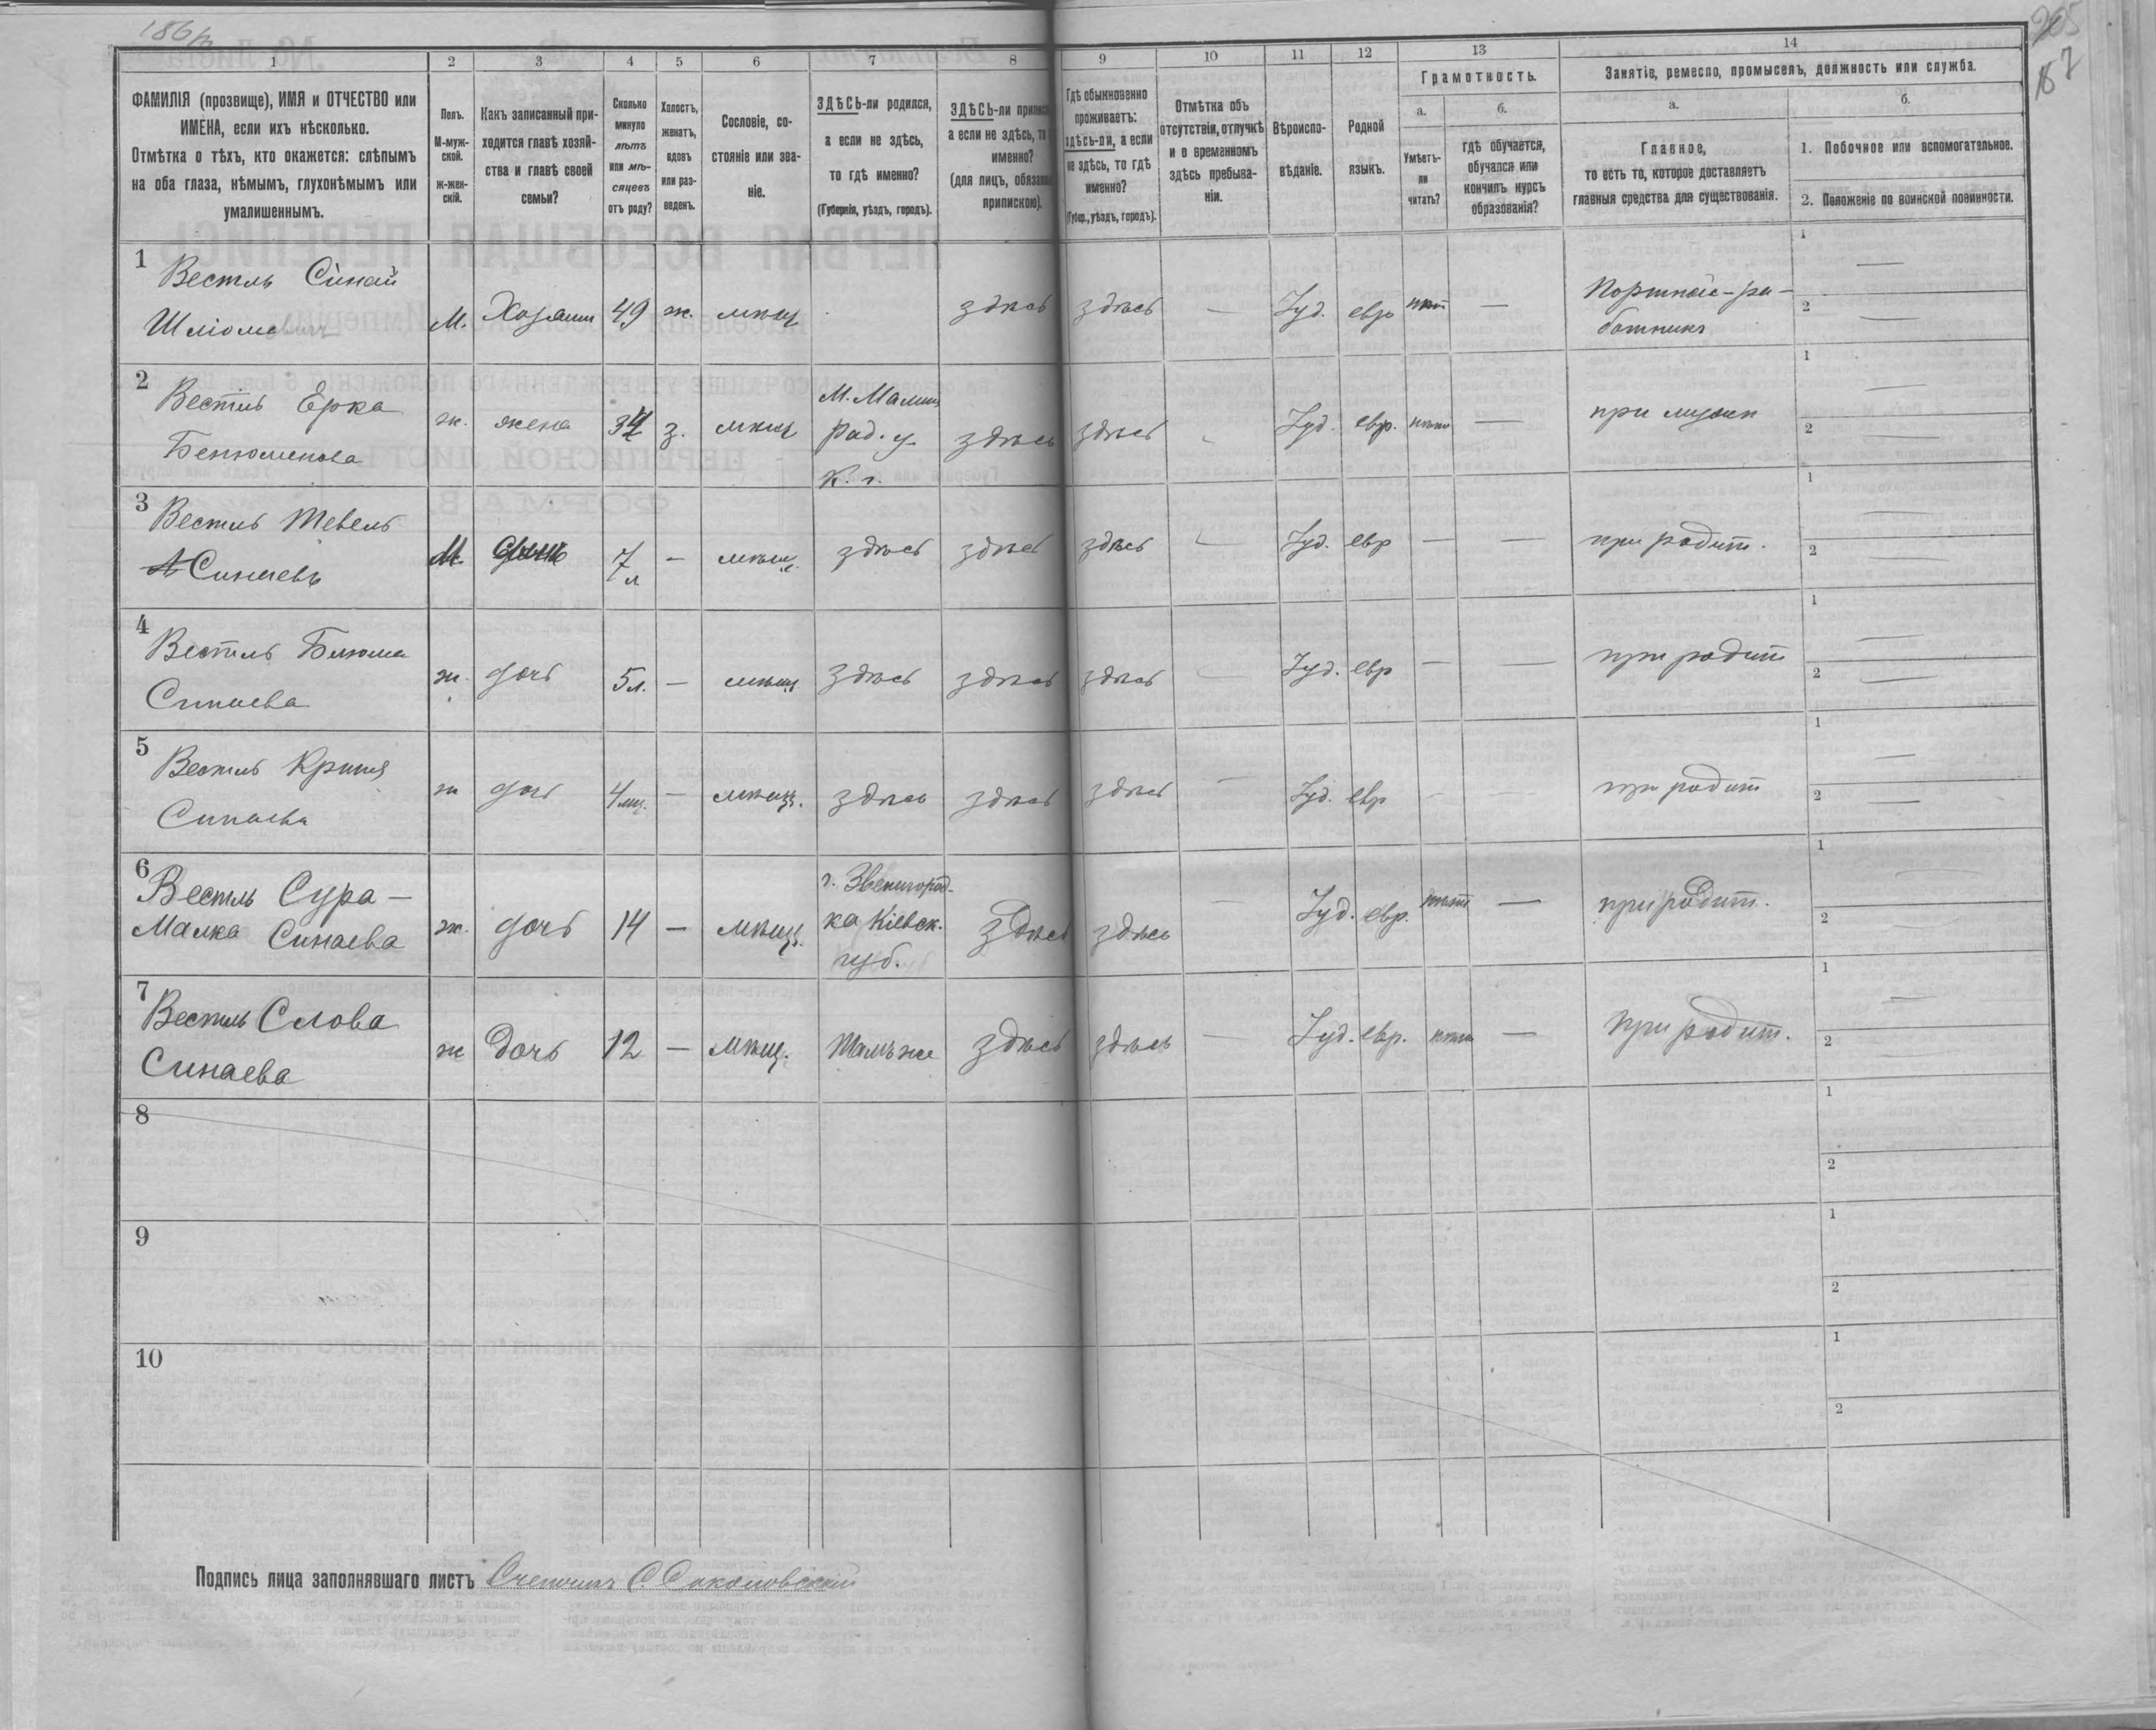 186
205
187
1 2 3 4 5 6 7 8 9 10 11 12 13 14
ФАМИЛІЯ (прозвище), ИМЯ и ОТЧЕСТВО или
ИМЕНА, если ихъ нѣсколько.
Отмѣтка о тѣхъ, кто окажется: слѣпымъ
на оба глаза, нѣмымъ, глухонѣмымъ или
умалишеннымъ.
Полъ.
М-муж-
ской.
Ж-жен-
скій.
Какъ записанный при-
ходится главѣ хозяй-
ства и главѣ своей
семьи?
Сколько
минуло
лѣтъ
или мѣ-
сяцевъ
отъ роду?
Холостъ,
женатъ,
вдовъ
или раз-
веденъ.
Сословіе, со-
стояніе или зва-
ніе.
ЗДѢСЬ-ли родился,
а если не здѣсь,
то гдѣ именно?
(Губернія, уѣздъ, городъ).
ЗДѢСЬ-ли
а если не здѣсь, то
именно?
(для лицъ,
припискою).
Гдѣ обыкновенно
проживаетъ:
здѣсь-ли, а если
не здѣсь, то гдѣ
именно?
(Губер., уѣздъ, городъ).
Отмѣтка объ
отсутствіи, отлучкѣ
и о временномъ
здѣсь пребыва-
ніи.
Вѣроиспо-
вѣданіе.
Родной
языкъ.
Грамотность.
а.
Умѣетъ-
ли
читать?
б.
гдѣ обучается,
обучался или
кончилъ курсъ
образованія?
Занятіе, ремесло, промыселъ, должность или служба.
а.
Главное,
то есть то, которое доставляетъ
главныя средства для существованія.
б.
1. Побочное или вспомогательное.
2. Положеніе по воинской повинности.
1
Вестль Синай
Шліомович
М. Хозяин 49 ж. мѣщ здѣсь здѣсь — Іуд. евр нѣт —
Портной-ра-
ботникъ
1 —
2 —
2
Вестль Ерка
Бенюминова
ж. жена з. мѣщ
М. Малин
Рад. у.
К. г.
здѣсь здѣсь Іуд. евр. —
при мужѣ
1 —
2 —
3
Вестль Тевель
Синаевъ
М. сынъ 7 л. — мѣщ. здѣсь здѣсь здѣсь — Іуд. евр — — при родит.
1 —
2 —
4
Вестль Блюма
Синаева
ж. дочь 5 л. — мѣщ здѣсь здѣсь здѣсь — Іуд. евр — — при родит
1 —
2 —
5
Вестль
Синаева
ж дочь — мѣщ. здѣсь здѣсь здѣсь — Іуд. евр — — при родит
1 —
2 —
6
Вестль Сура-
Малка Синаева
ж. дочь 14 — мѣщ.
г. Звенигород-
ка Кіевск.
губ.
здѣсь здѣсь — Іуд. евр. нѣтъ — при родит.
1 —
2 —
7
Вестль Слова
Синаева
ж дочь 12 — мѣщ. тамъ же здѣсь здѣсь — Іуд. евр. — при родит.
1 —
2 —
8
1
2
9
1
2
10
1
2
Подпись лица заполнявшаго листъ Счетчикъ С. Соколовскій